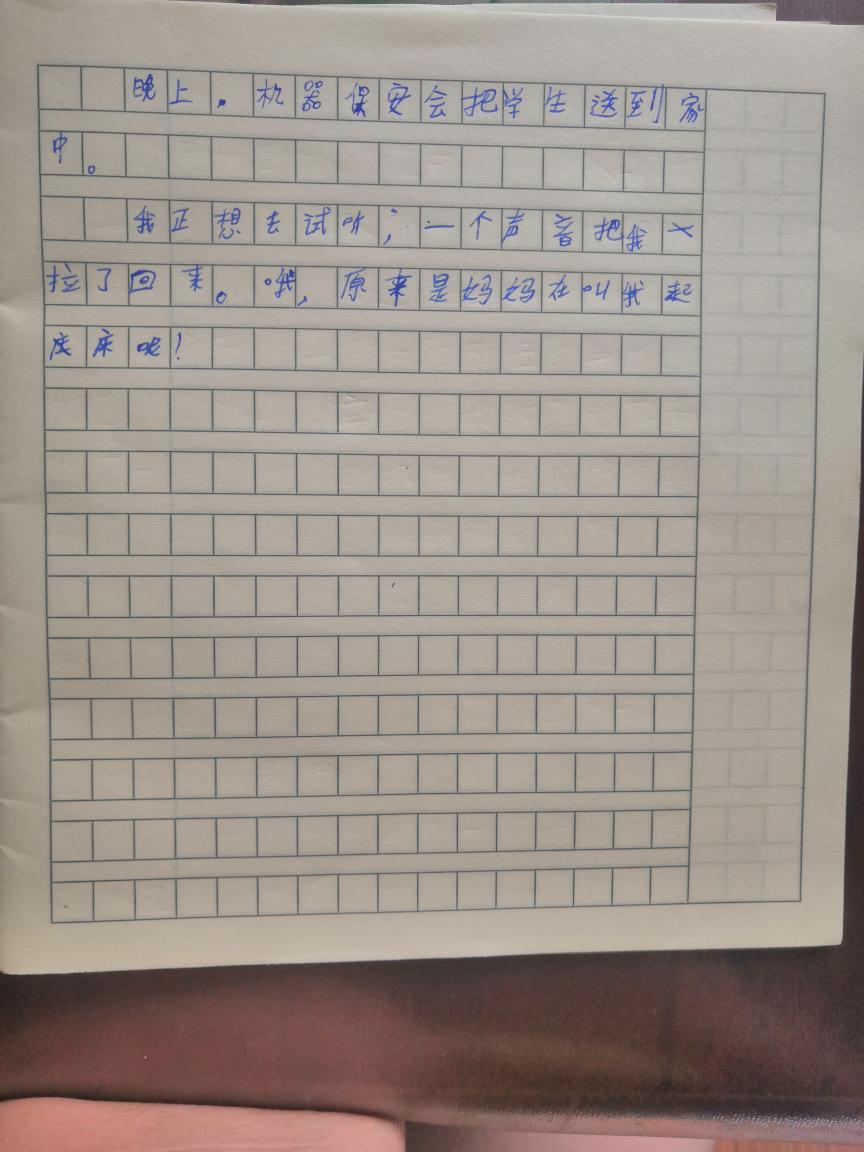 晚上.机器保安会把学生送到家
中。
我正想去试听,一个声音把我
拉了回来。哦,原来是妈妈在叫我起
床呢!